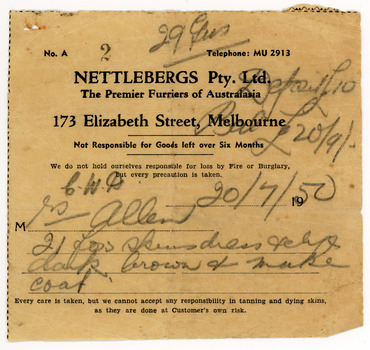 29 Gns
No. A 2 Telephone: MU 2913
NETTLEBERGS Pty. Ltd.
Deposit £10
The Premier Furriers of Australasia
173 Elizabeth Street, Melbourne
Bal £20/9/-
Not Responsible for Goods left over Six Months
We do not hold ourselves responsible for loss by Fire or Burglary,
but every precaution is taken.
C.W.P 20/7/1950
Mrs Allen
21 fox skins dress & dye
dark brown & make
coat
Every care is taken, but we cannot accept any responsibility in tanning and dying skins,
as they are done at Customer's own risk.